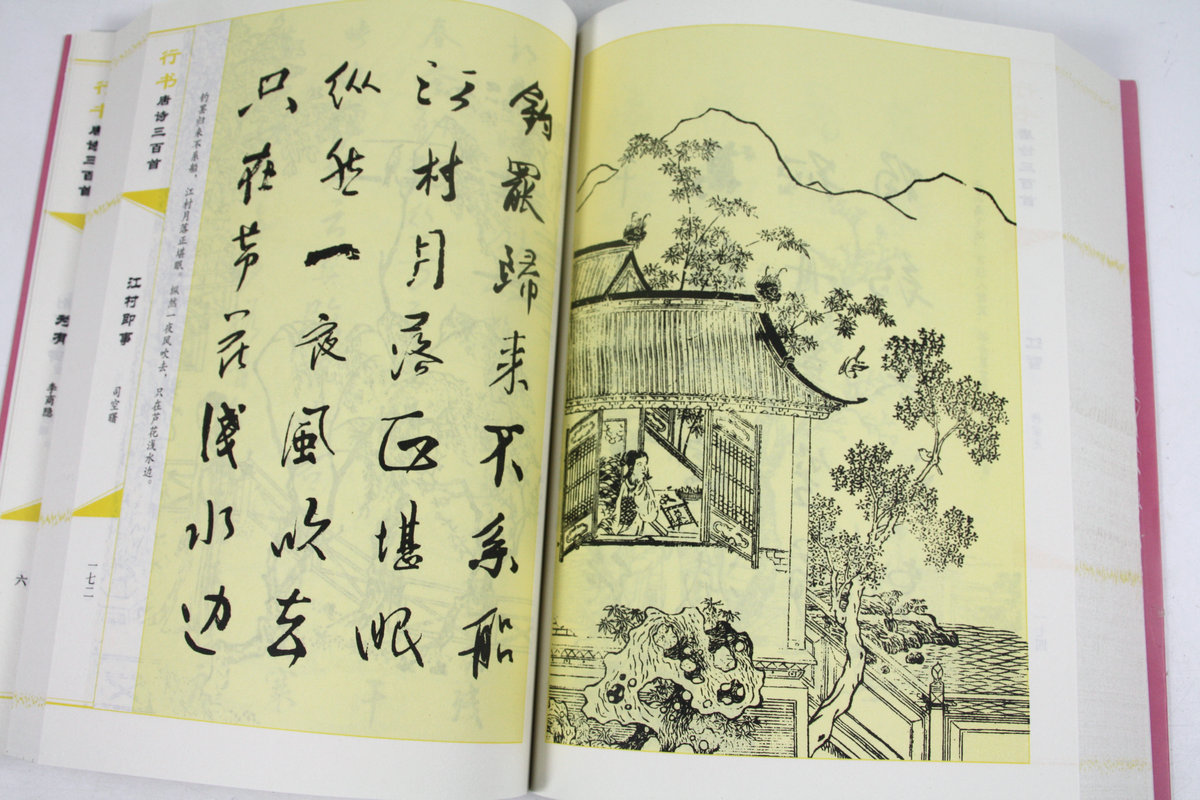 釣罷歸来不系船
江村月落正堪眠
纵然一夜風吹去
只在芦花淺水边
钓罢归来不系船，江村月落正堪眠。纵然一夜风吹去，只在芦花浅水边。
行书
唐诗三百首
江村即事
司空曙
一七二
唐诗三百首
李商隐
六